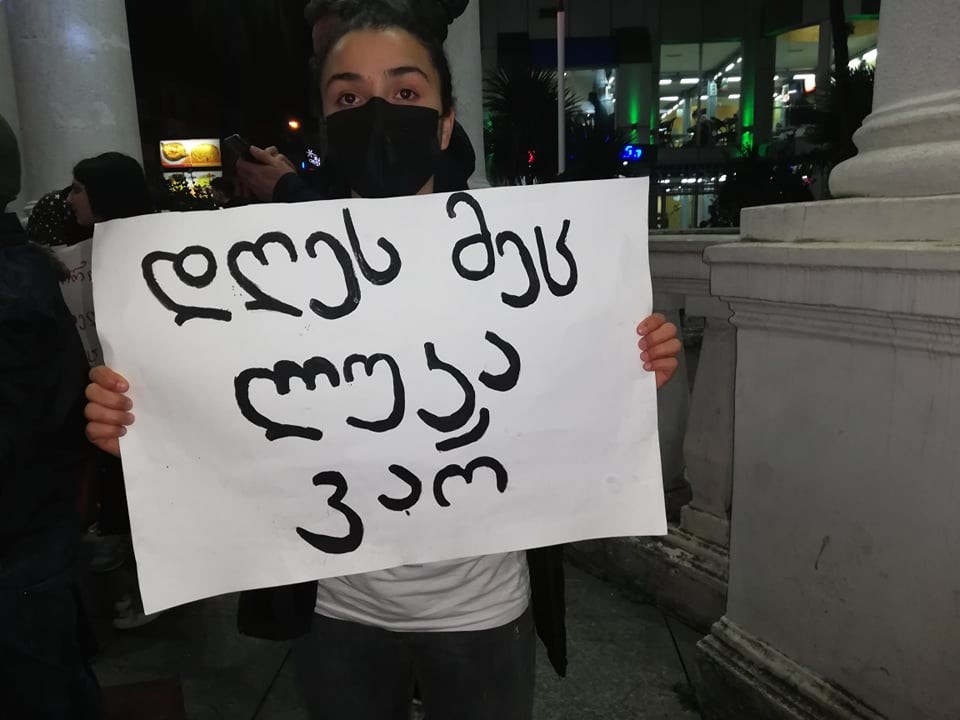 დღეს მეც
ლუკა
ვარ